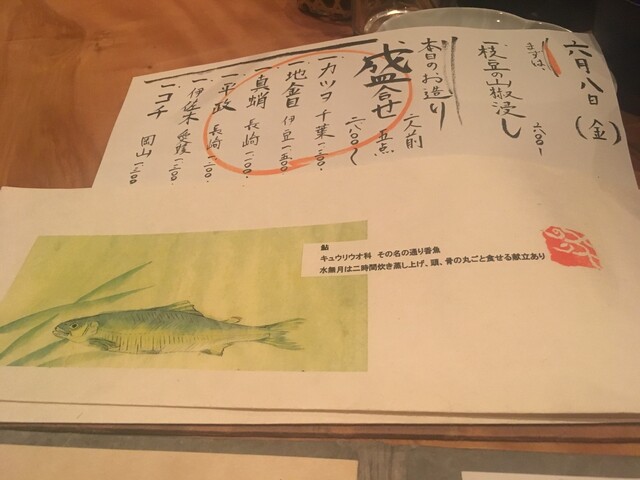 六月八日(金)
まずは、
一、枝豆の山椒浸し 六〇〇〜
本日のお造り
盛合せ 五点 二人前 二八〇〇〜
一 カツヲ 千葉 一三〇〇
一 地金目 伊豆 一五〇〇
一 真蛸 長崎 一二〇〇
一 平政 長崎 一二〇〇
一 伊佐木 愛媛 一三〇〇
一 コチ 岡山 一三〇〇
鮎
キュウリウオ科 その名の通り香魚
水無月は二時間炊き蒸し上げ、頭、骨の丸ごと食せる献立あり